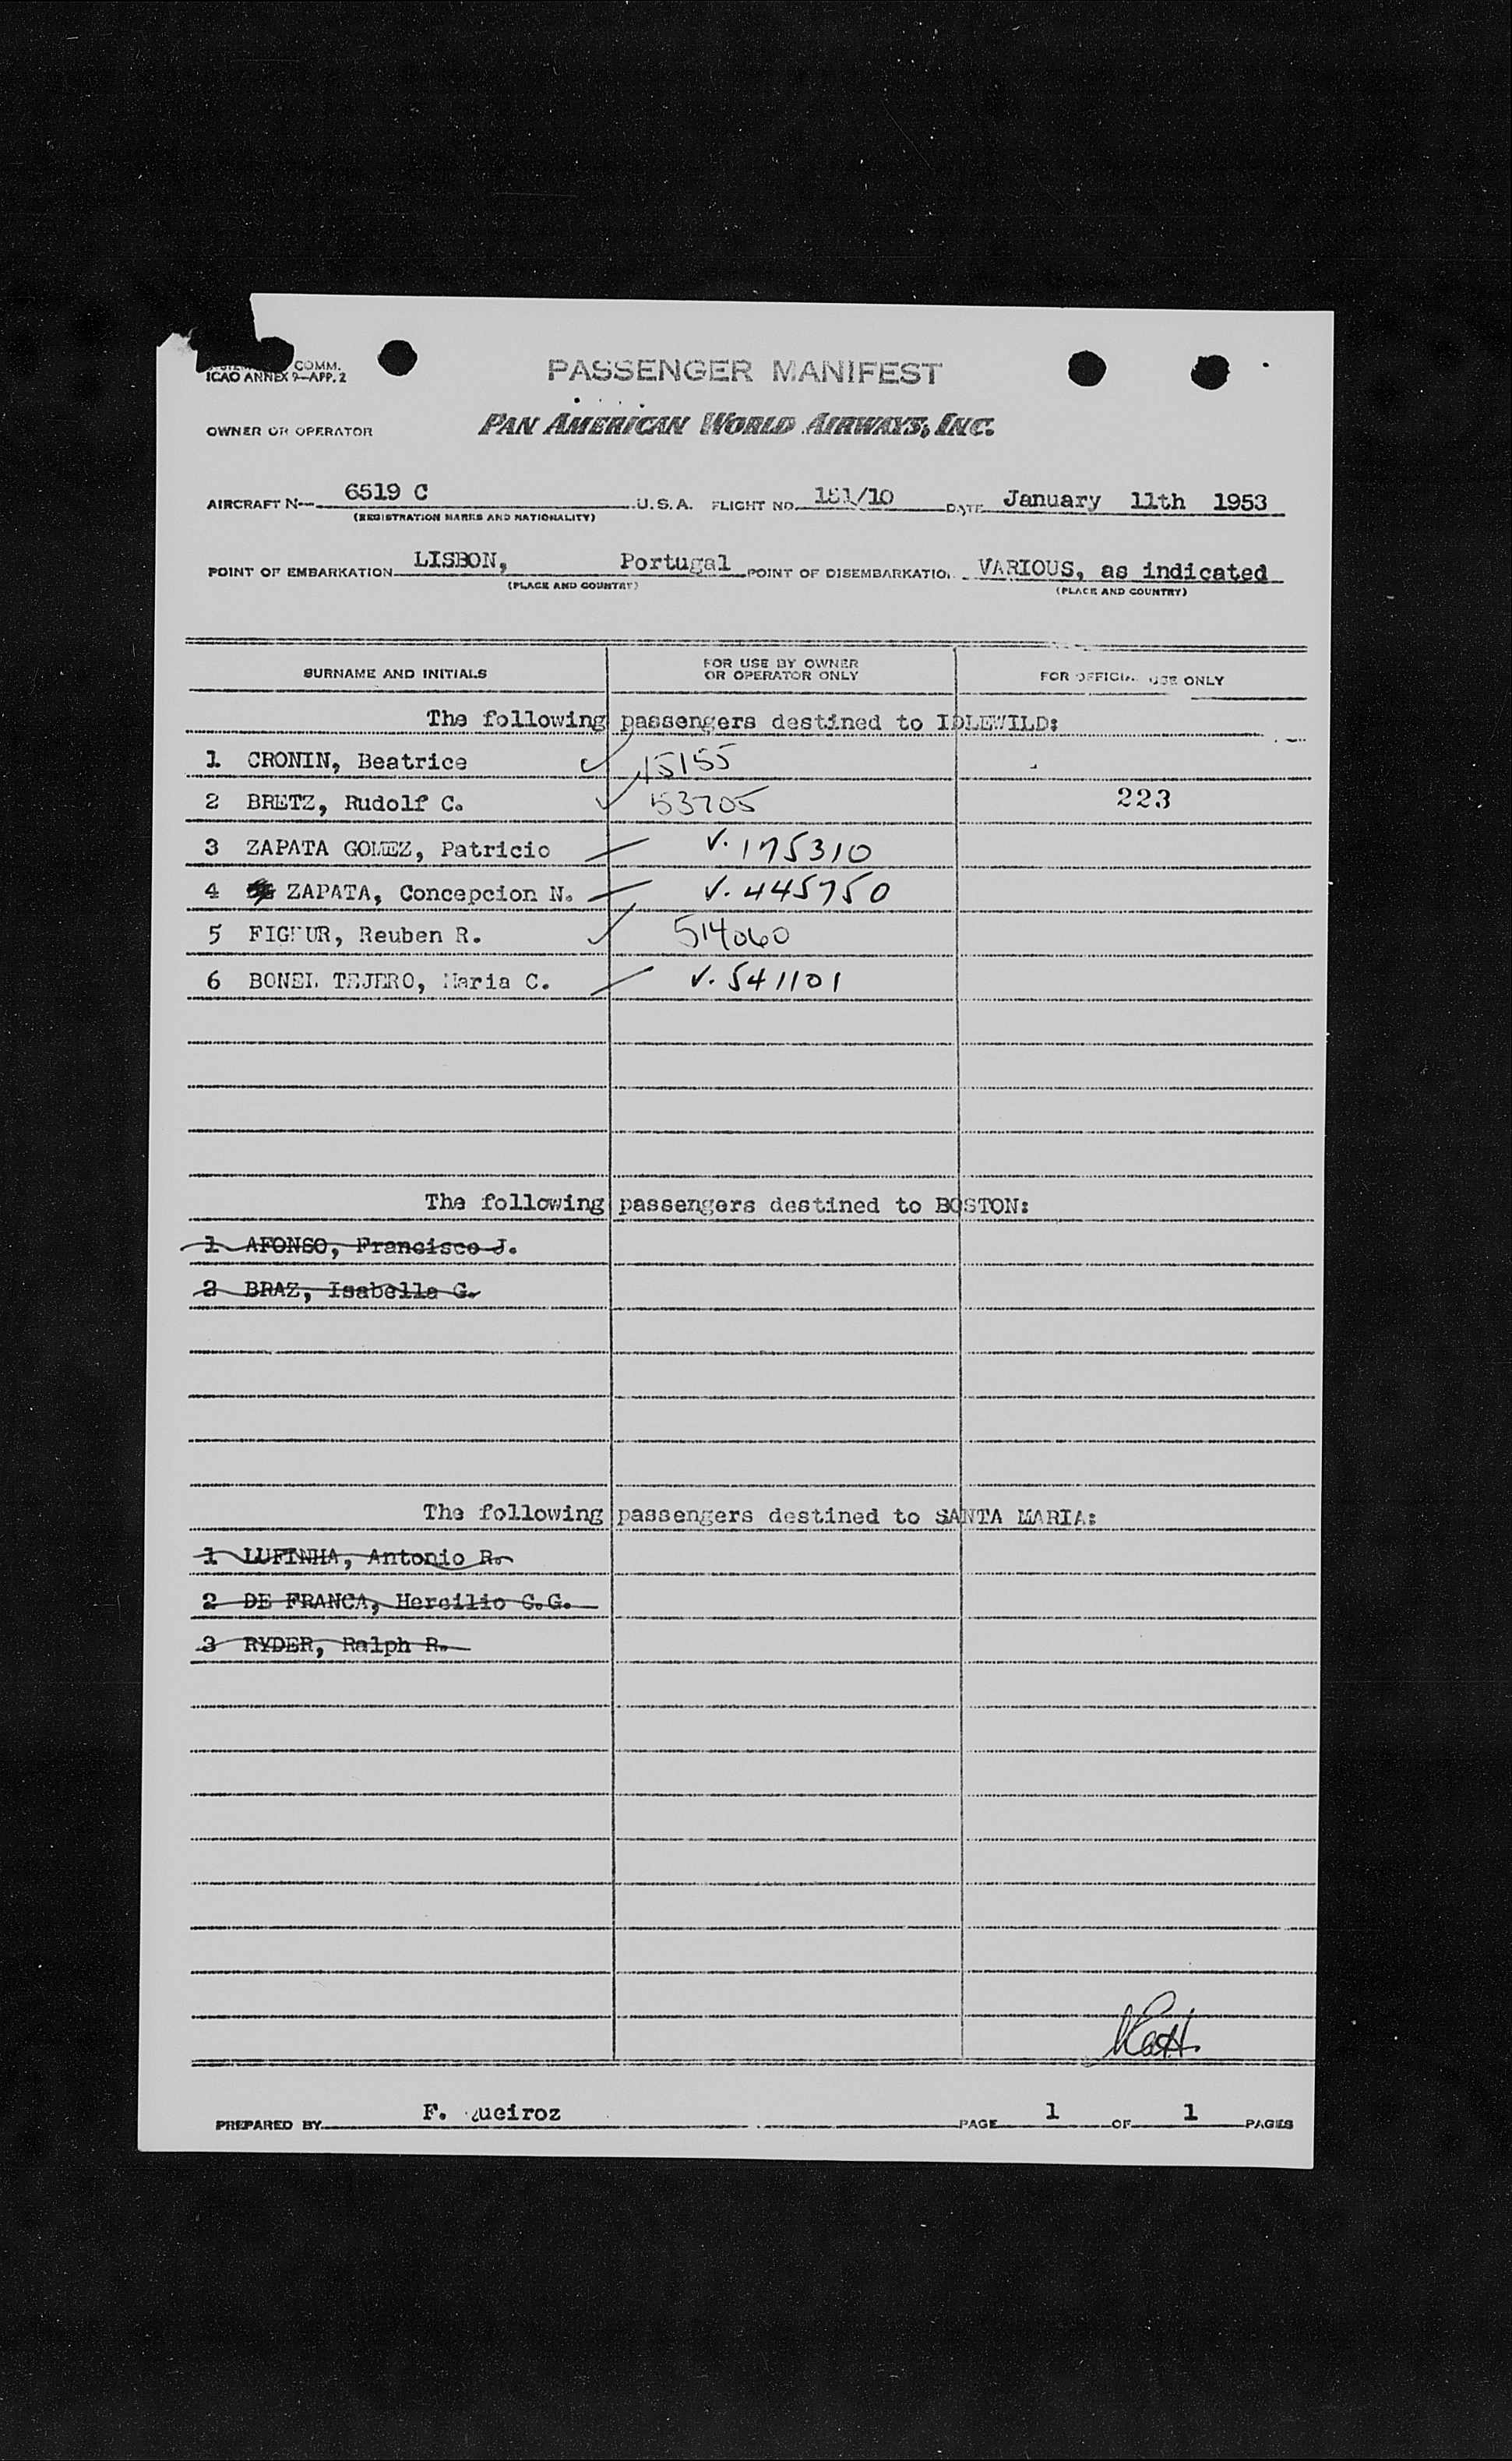 COMM.
ICAO ANNEX 9—APP. 2
PASSENGER MANIFEST
OWNER OR OPERATOR PAN AMERICAN WORLD AIRWAYS, INC.
AIRCRAFT N— 6519 C U.S.A. FLIGHT NO. 151/10 DATE January 11th 1953
(REGISTRATION MARKS AND NATIONALITY)
POINT OF EMBARKATION LISBON, Portugal POINT OF DISEMBARKATION VARIOUS, as indicated
(PLACE AND COUNTRY) (PLACE AND COUNTRY)
SURNAME AND INITIALS FOR USE BY OWNER OR OPERATOR ONLY FOR OFFICIAL USE ONLY
The following passengers destined to IDLEWILD:
1 CRONIN, Beatrice 15155
2 BRETZ, Rudolf C. 53705 223
3 ZAPATA GOMEZ, Patricio V. 175310
4 ZAPATA, Concepcion N. V. 445750
5 Reuben R. 514060
6 BONEL TEJERO, Maria C. V. 541101
The following passengers destined to BOSTON:
1 AFONSO, Francisco J.
2 BRAZ, Isabella G.
The following passengers destined to SANTA MARIA:
1 LUFINHA, Antonio R.
2 DE FRANCA, Hercilio C.G.
3 RYDER, Ralph R.
PREPARED BY F. Queiroz PAGE 1 OF 1 PAGES